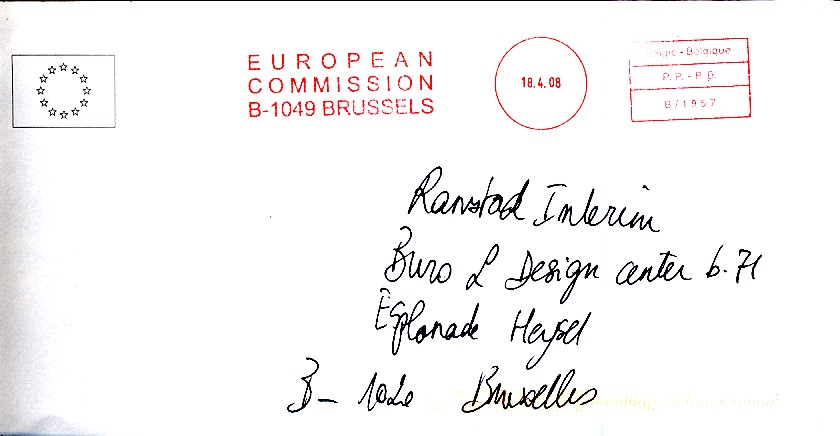 EUROPEAN
COMMISSION
B-1049 BRUSSELS
18.4.08
België - Belgique
P.P. - P.B.
B/1957
Ranstad Interim
Buro & Design center b. 71
Esplanade Heysel
B- 1020 Bruxelles